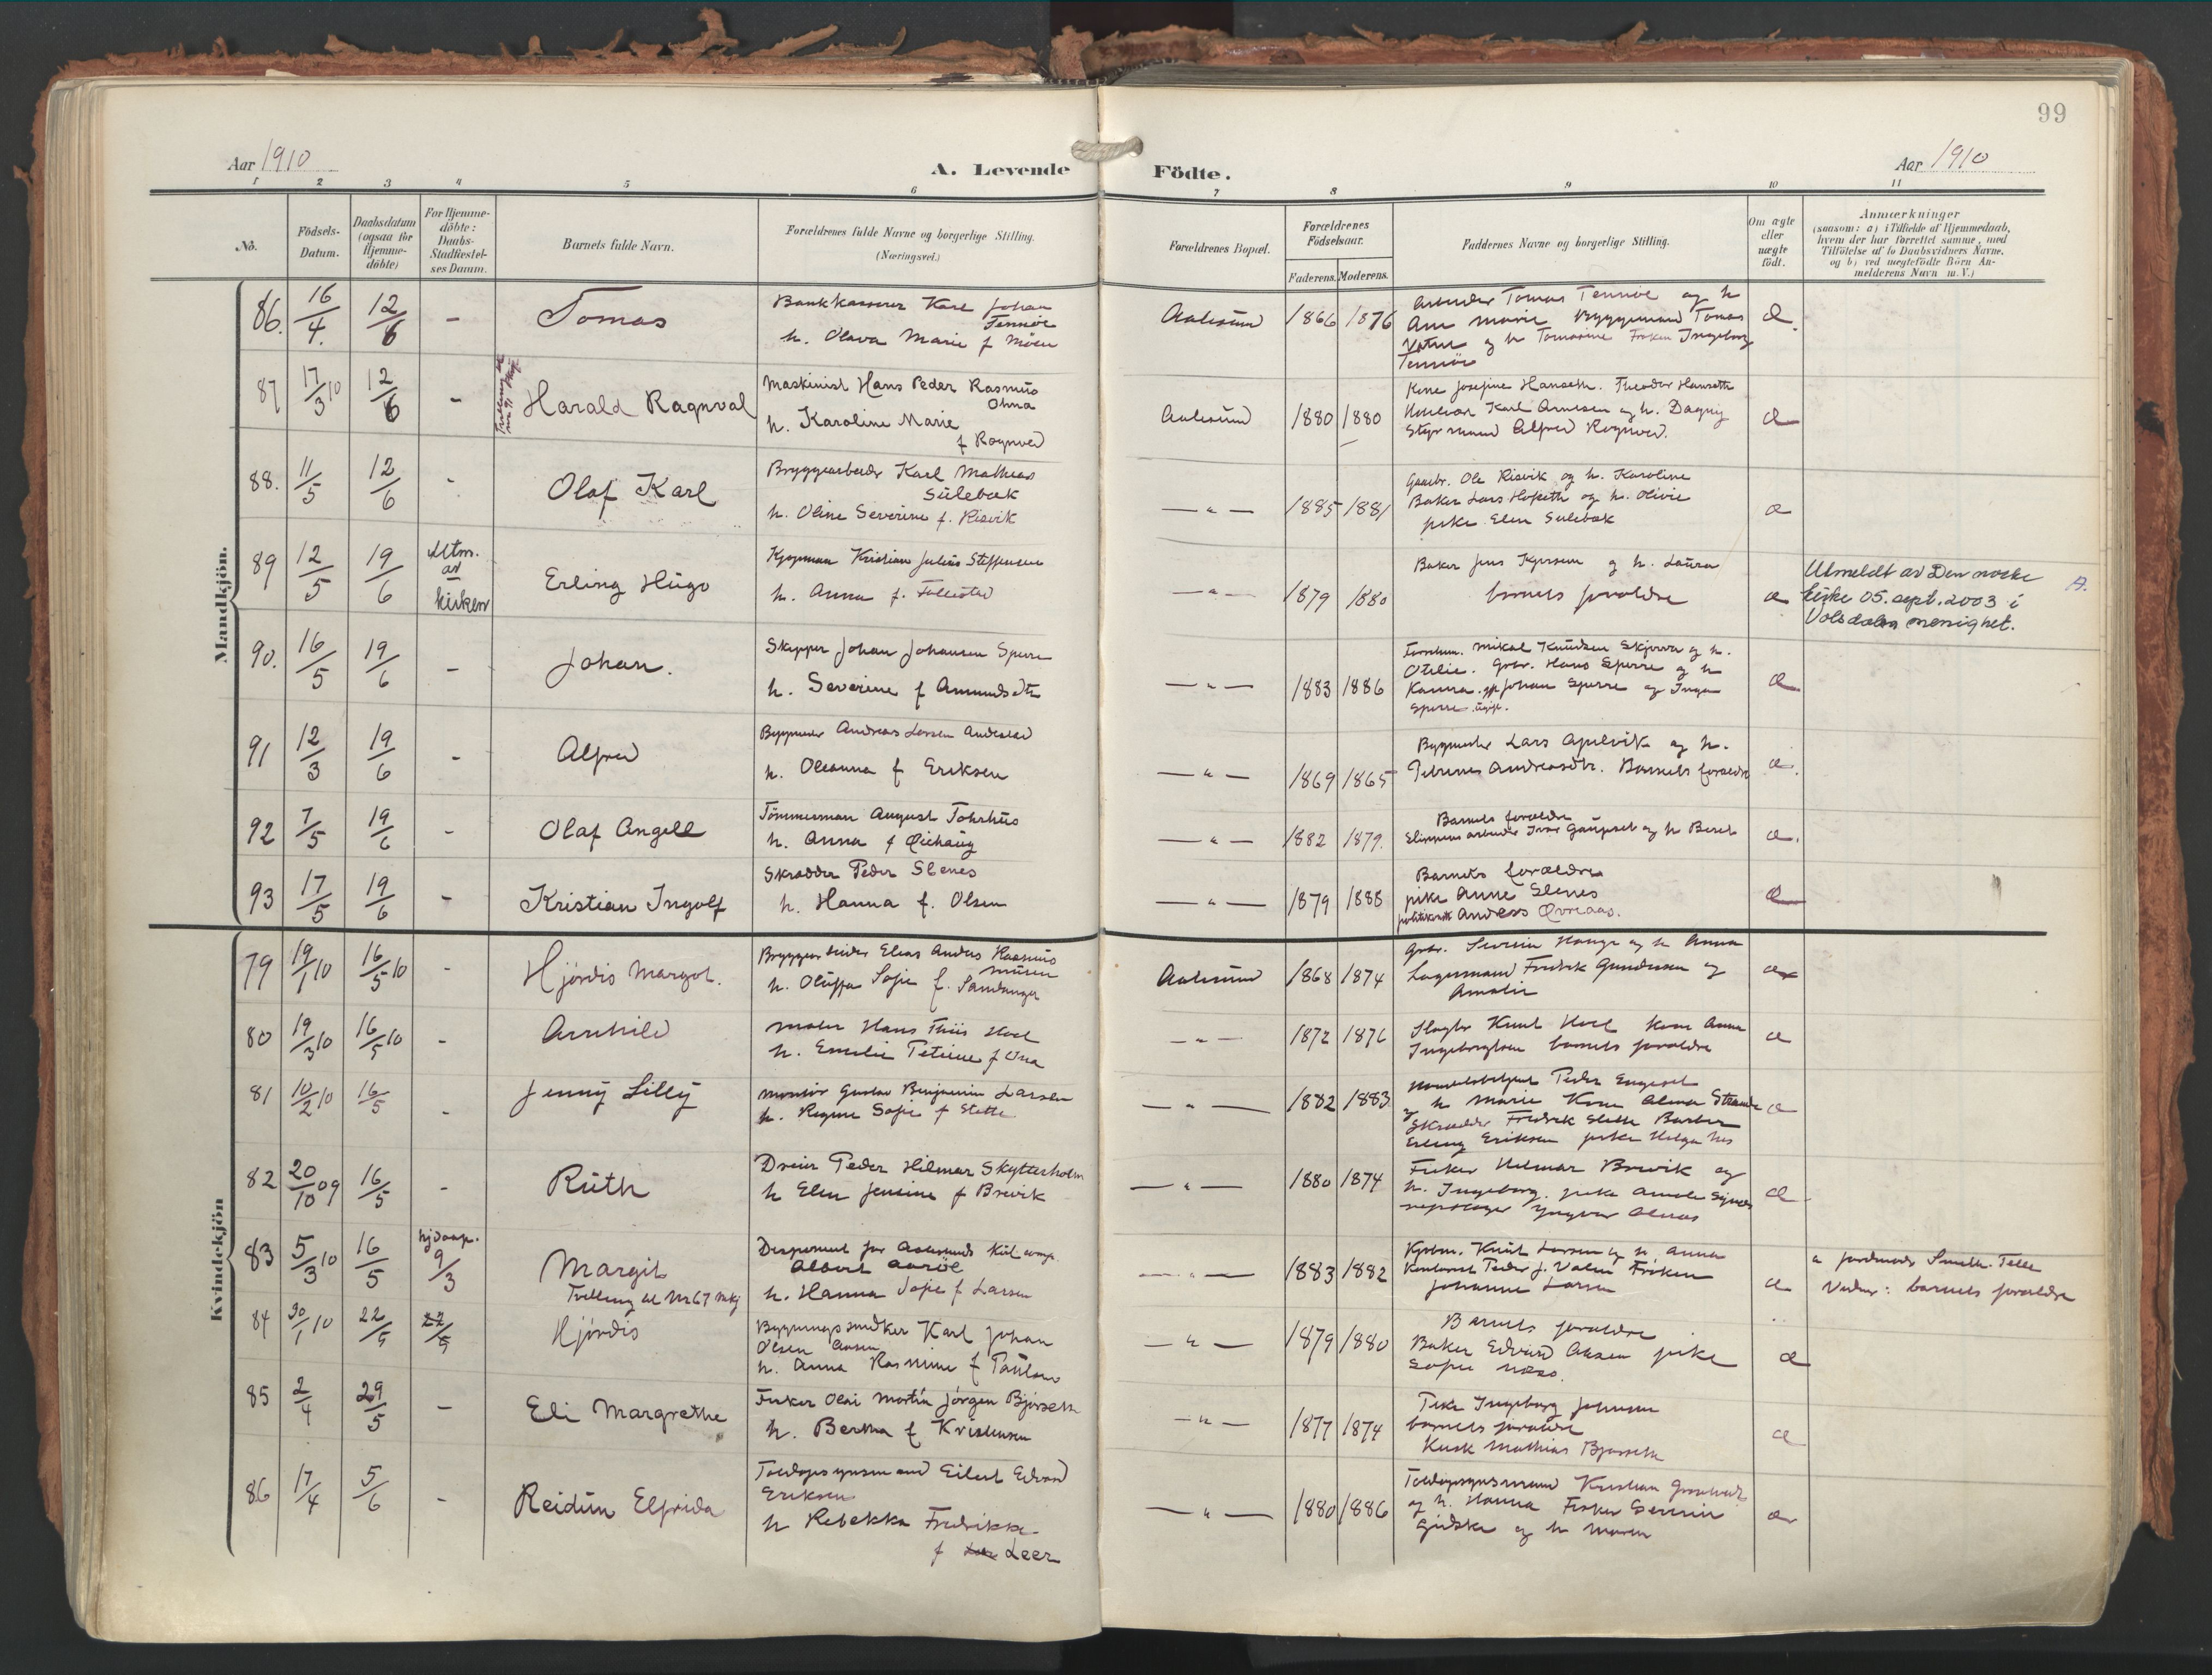 99
Aar 1910
A. Levende
Födte.
Aar 1910
1 2 3 4 5 6 7 8 9 10 11
No.
Födsels-
Datum.
Daabsdatum
(ogsaa for
Hjemme-
döbte)
For Hjemme-
döbte:
Daabs-
Stadfæstel-
ses Datum.
Barnets fulde Navn.
Forældrenes fulde Navne og borgerlige Stilling.
(Næringsvei.)
Forældrenes Bopæl.
Forældrenes
Födselsaar.
Faderens. Moderens.
Faddernes Navne og borgerlige Stilling.
Om ægte
eller
uægte
födt.
Anmærkninger
(saasom: a) i Tilfælde af Hjemmedaab,
hvem der har forrettet samme, med
Tilföielse af to Daabsvidners Navne,
og b) ved uægtefödte Börn An-
melderens Navn m. V.)
Mandkjön.
86. 16/4. 12/6 - Tomas
Bankkasserer Karl Johan
Tennöe
h. Olava Marie f Moen
Aalesund 1866 1876
Arbeider Tomas Tennöe og h
Ane Marie Byggmand Tomas
Vatne og h Tomasine Fröken Ingeborg
Tennöe
æ.
87 17/3 10 12/6 - Harald Ragnval
Maskinist Hans Peder Rasmus
Ohna
h. Karoline Marie
f Rognved
Aalesund 1880 1880
Kone Josefine Hanseth. Theodor Hanseth
Karl Arntsen og h. Dagny
Styrmand Alfred Rognved.
æ
88. 11/5 12/6 - Olaf Karl
Bryggearbeider Karl Mathias
Sulebak
h. Oline Severine f. Risvik
— " — 1885 1881
Gaardbr. Ole Risvik og h. Karoline
Baker Lars Hofseth og h. Olivie
pike Elen Sulebak
æ
89 12/5 19/6 Utm.
av
kirken
Erling Hugo
Kjöpman Kristian Julius Steffensen
h. Anna f. Follestad
— " — 1879 1880
Baker Jens Kjersem og h. Laura
barnets forældre
æ
Utmeldt av Den norske
kirke 05. sept. 2003 i
Volsdalen menighet.
A.
90. 16/5 19/6 - Johan.
Skipper Johan Johansen Sperre
h. Severine f Amundsdtr
— " — 1883 1886
Mikal Knudsen Skjerva og h.
Otelie. Gbr. Hans Sperre og h
Johan Sperre og Inga
Sperre ugift.
æ.
91 12/3 19/6 - Alfred
Andreas Larsen Andestad
h. Oleanna f Eriksen
— " — 1869 1865
Bygmester Lars Apelvik og h.
Andreasdtr. Barnets forældre
æ.
92 7/5 19/6 - Olaf Angell
Tömmerman August Johshus
h. Anna f
— " — 1882 1879.
Barnets forældre
arbeider Ivar Gaupset og h Beret
æ.
93 17/5 19/6 - Kristian Ingolf
Skrædder Peder Stenes
h. Hanna f. Olsen
— " — 1879 1888
Barnets forældre
pike Anne Stenes
Anders Qvreaas.
æ
Kvindekjön
79 19/1 10 16/5 10 - Hjördis Margot.
Bryggearbeider Elias Anders Rasmus
musen
h. Oluffa Sofie f. Samdanger
Aalesund 1868 1874
Gbr. Severin Hauge og h Anna
Lagermand Fredrik Gundersen og
Amalie
æ
80 19/3 10 16/5 10 - Arnhild
Maler Hans Thiis Hoel
h. Emilie Petrine f Ona
— " — 1872 1876
Slagter Knut Hoel Kone Anna
Ingebrigtsen barnets forældre
æ
81 10/2 10 16/5 - Jenny Lilly
Montör Gustav Benjamin Larsen
h. Regine Sofie f Slette
— " — 1882 1883
Peder Engeset
og h Marie Kone Alma Strande
Skrædder Fredrik Slette Barber
Erling Eriksen pike Helga
æ
82 20/10 09 16/5 - Ruth
Dreier Peder Hilmar Skytterholm
h Elen Jensine f Brevik
— " — 1880 1874
Fisker Helmar Brevik og
h. Ingeborg. pike Amalie
Yngvar Alnæs
æ
83 5/3 10 16/5 hjdaap. 9/3 Margit
Tvilling til Nr 67 mkj
Disponent for Aalesunds Kul comp.
Albert Aaröe
h. Hanna Sofie f Larsen
— " — 1883 1882
Kjöbm. Knut Larsen og h. Anna
Kontorist Peder J. Valen Fröken
Johanne Larsen
æ
a jordmoder Smith. Telle
Vidner: barnets forældre
84 30/1 10 22/5 22/5 Hjördis
Bygningssnedker Karl Johan
Olsen Aasen
h. Anna Rasmine f Paulsen
— " — 1879 1880
Barnets forældre
Baker Edvard Aasen pike
Sofie Næss.
æ
85 2/4 29/5 - Eli Margrethe
Fisker Olai Martin Jörgen Bjørseth
h. Bertha f Kristensen
— " — 1877 1874
Pike Ingeborg Johnsen
barnets forældre
Kusk Mathias Bjørseth
æ
86 17/4 5/6 - Reidun Elfrida
Toldopsynsmand Eilert Edvard
Eriksen
h Rebekka Fredrikke
f Leer
— " — 1880 1886
Toldopsynsmand Kristian
og h. Hanna Fisker Severin
Giske og h Maren
æ